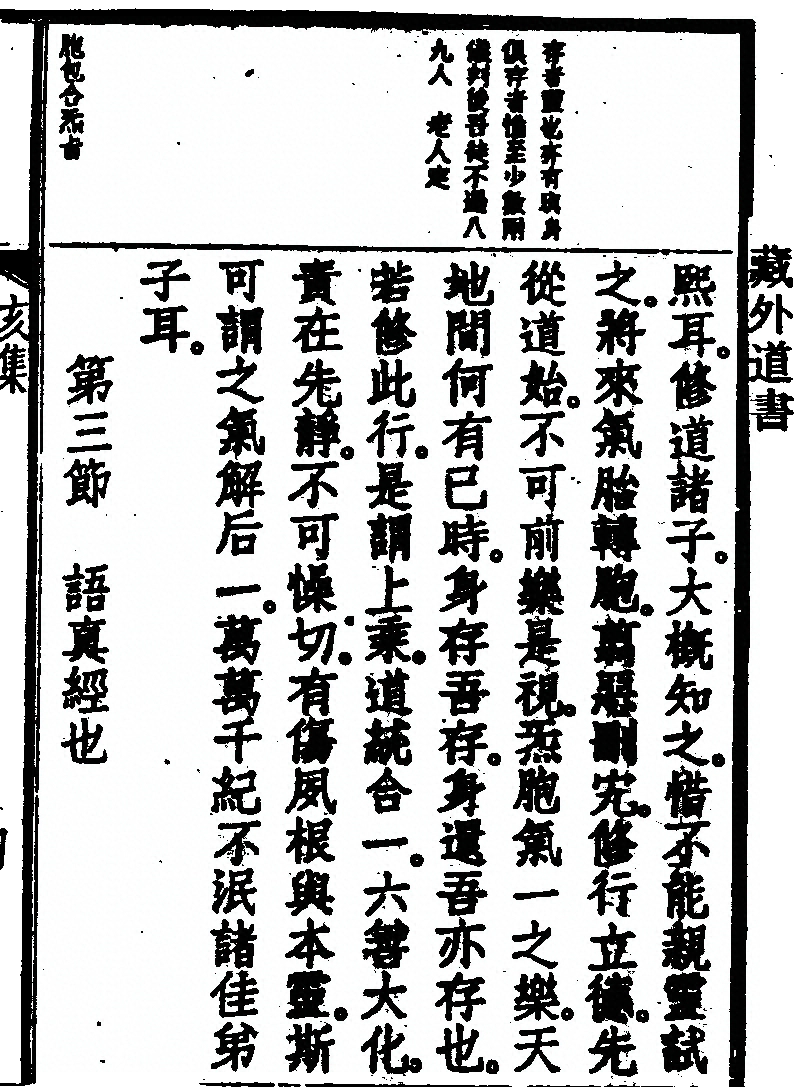 藏外道書
存者靈也亦有與身
俱存者惟至少數耐
後吾徒不過八
九人　老人定
熙耳。修道諸子。大概知之。惜不能親靈試
之。將來氣胎轉胞。萬惡刪完。修行立德。先
從道始。不可前樂是視。炁胞氣一之樂。天
地間何有已時。身存吾存。身還吾亦存也。
若修此行。是謂上乘。道統合一。六善大化。
貴在先靜。不可懆切。有傷夙根與本靈。斯
可謂之氣解后一。萬萬千紀不泯。諸佳弟
子耳。
第三節　語真經也
胞包合炁旨
亥集